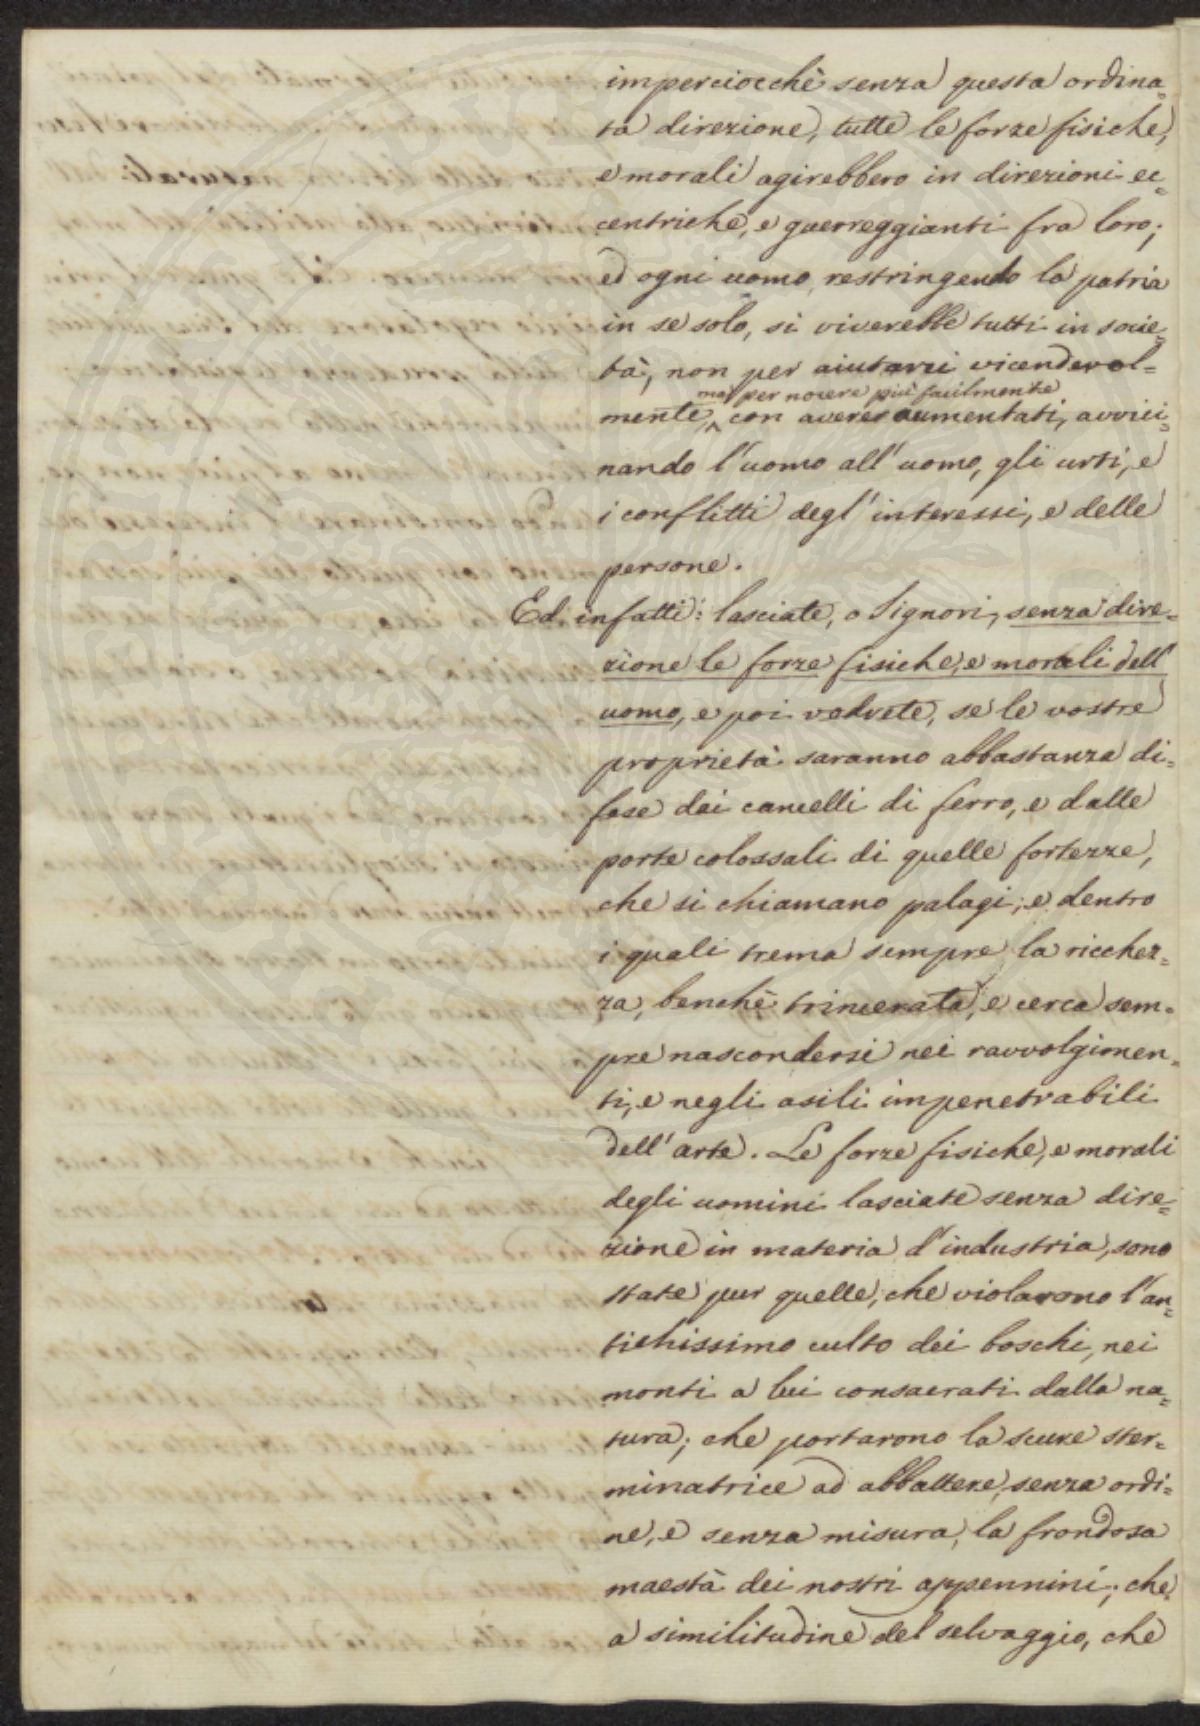 imperciocchè senza questa ordina=
ta direzione, tutte le forze fisiche,
e morali agirebbero in direzioni ec=
centriche, e guerreggianti fra loro;
ed ogni uomo, restringendo la patria
in se solo, si viverebbe tutti in socie=
tà, non per aiutarsi vicendevol=
ma per nocere più facilmente
mente, ^ con averes aumentati, avvici=
nando l'uomo all'uomo, gli urti, e
i conflitti degl'interessi, e delle
persone.
Ed infatti: lasciate, o Signori, senza dire=
zione le forze fisiche, e morali dell'
uomo, e poi vedrete, se le vostre
proprietà saranno abbastanza di=
fese dai cancelli di ferro, e dalle
porte colossali di quelle fortezze,
che si chiamano palagi; e dentro
i quali trema sempre la ricchez=
za, benchè trincerata, e cerca sem=
pre nascondersi nei ravvolgimen=
ti, e negli asili impenetrabili
dell'arte. Le forze fisiche, e morali
degli uomini lasciate senza dire=
zione in materia d'industria, sono
state pur quelle, che violarono l'an=
tichissimo culto dei boschi, nei
monti a lui consacrati dalla na=
tura; che portarono la scure ster=
minatrice ad abbattere, senza ordi=
ne, e senza misura, la frondosa
maestà dei nostri appennini; che
a similitudine del selvaggio, che